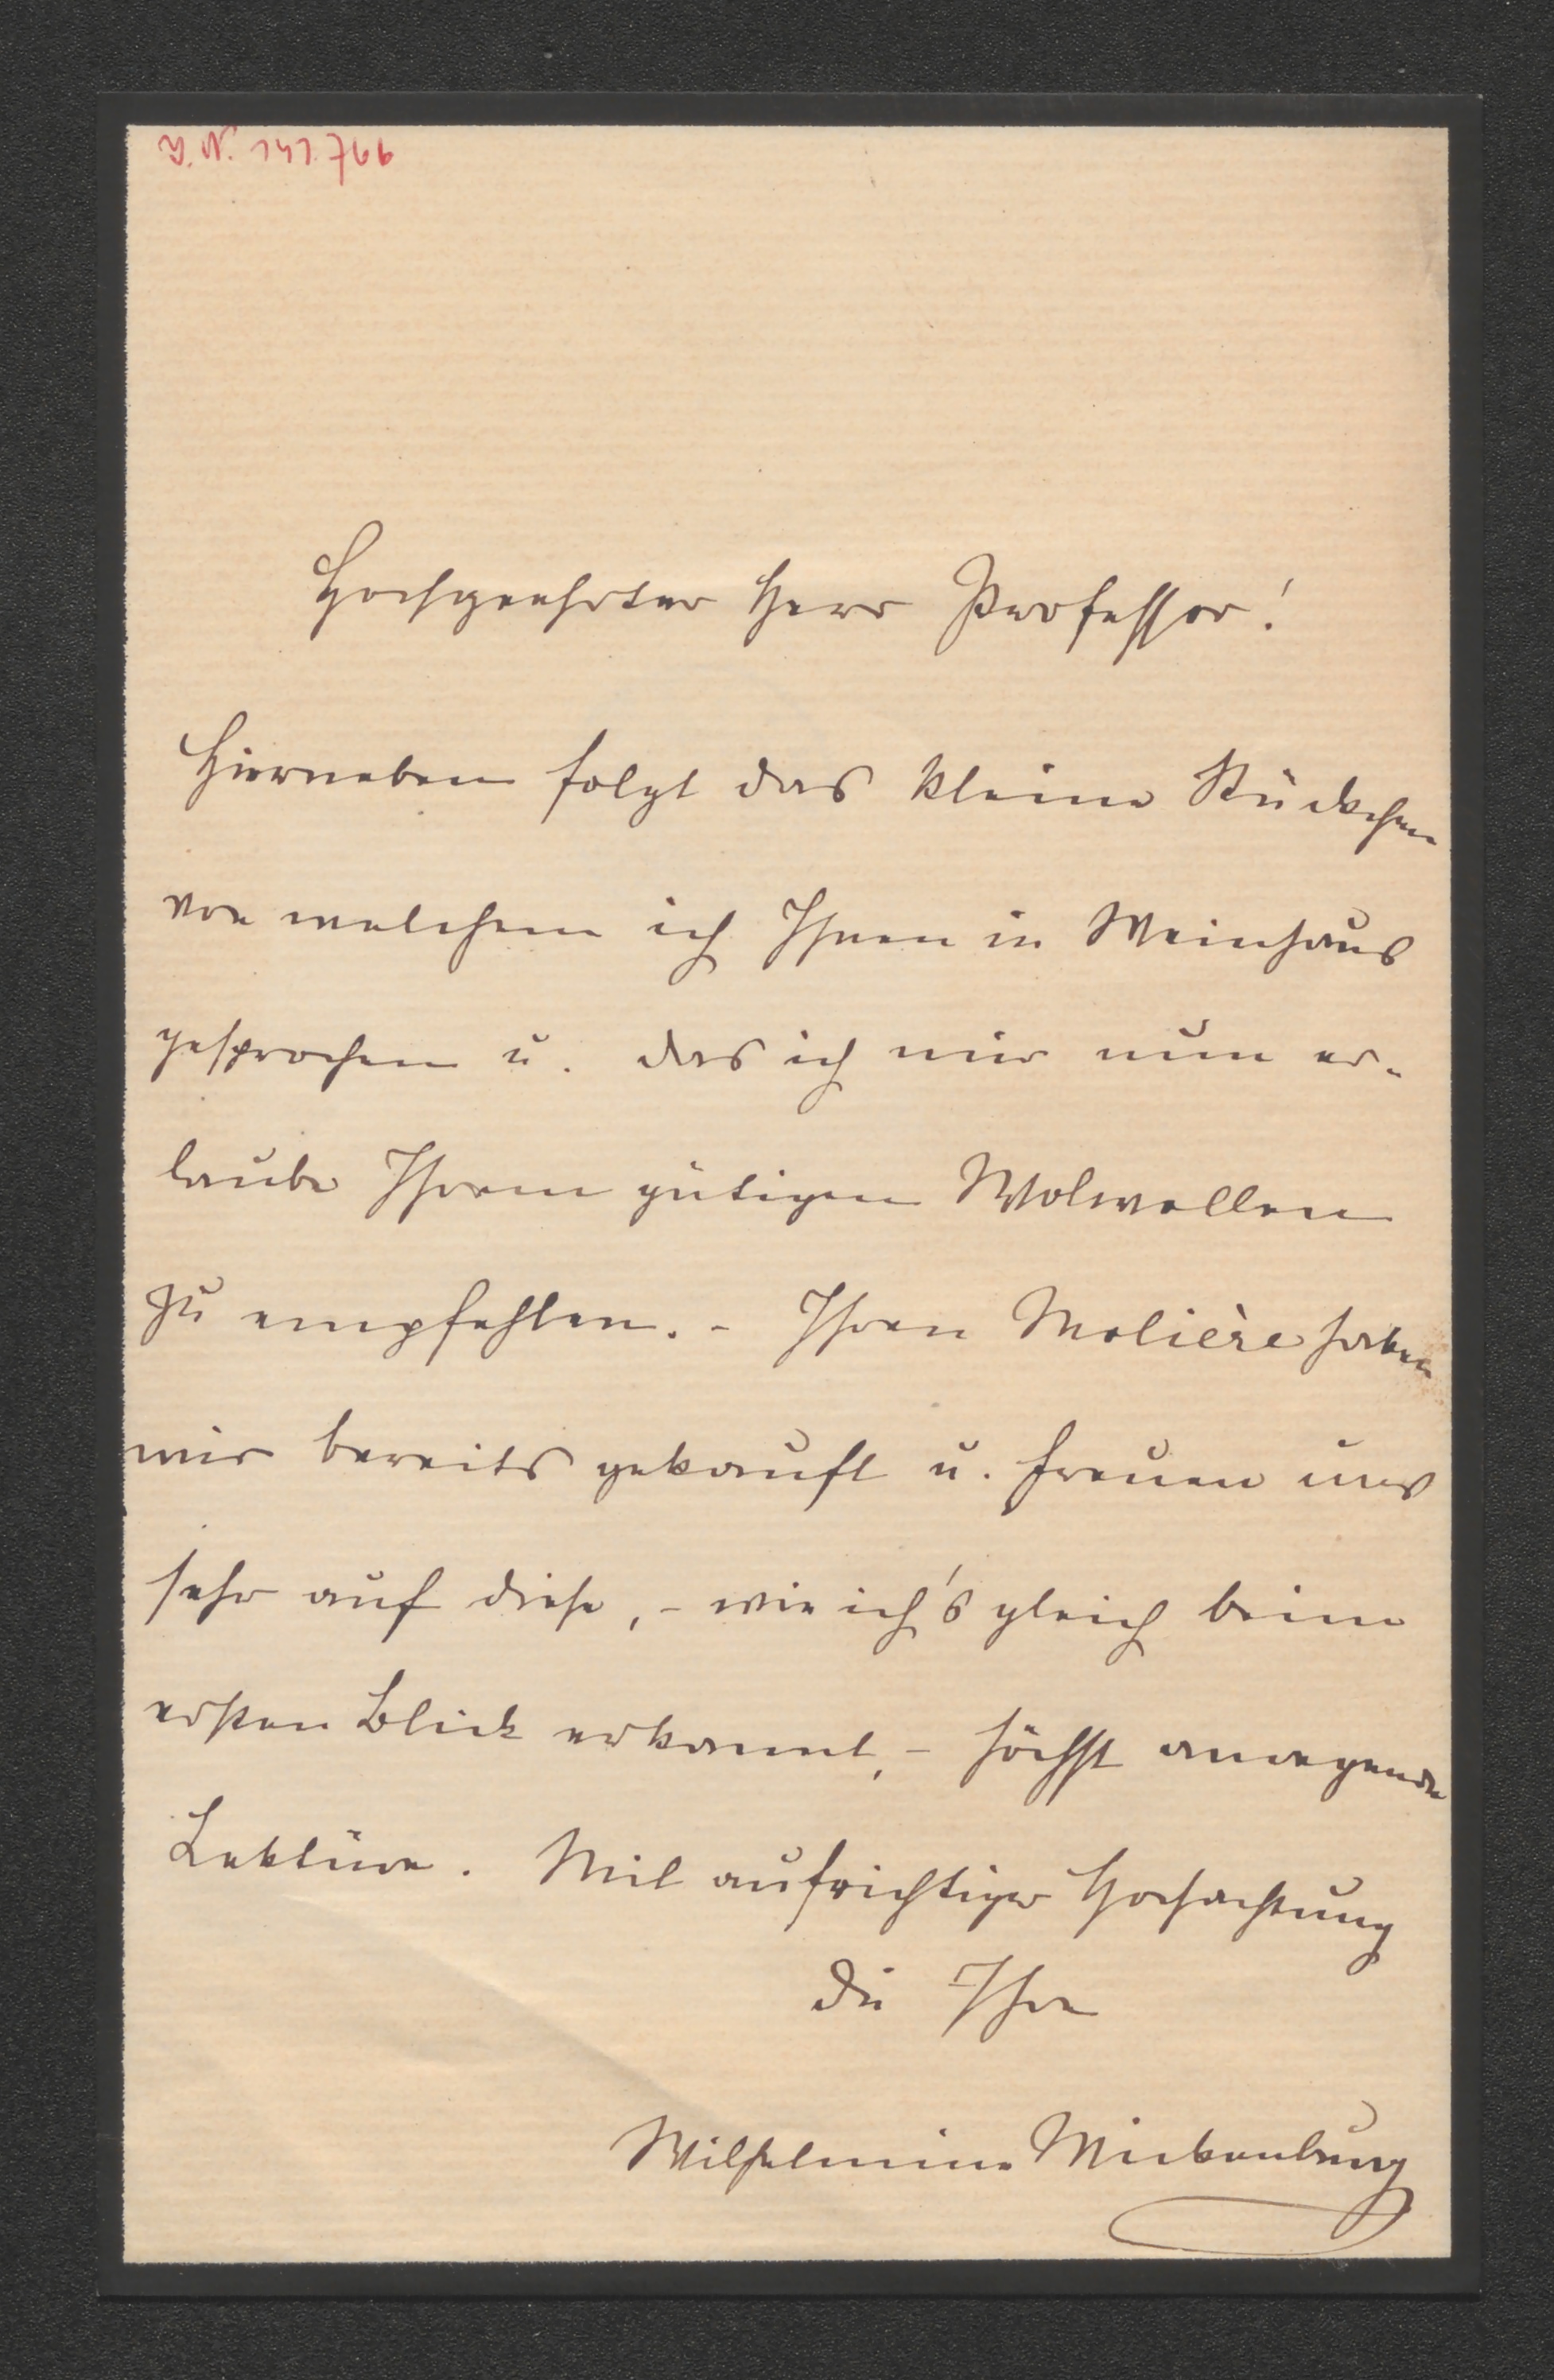 Hochgeehrter Herr Professor!
Hierneben folgt das kleine Stückchen
von welchem ich Ihnen in Weinhaus
gesprochen u. das ich mir nun er-
laube Ihrem gütigen Wolwollen
zu empfehlen. - Ihren Molière haben
wir bereits gekauft u. freuen uns
sehr auf diese, - wie ich's gleich beim
ersten Blick erkannt, - höchst anregende
Lektüre. Mit aufrichtiger Hochachtung
die Ihre
Wilhelmine Mickenburg